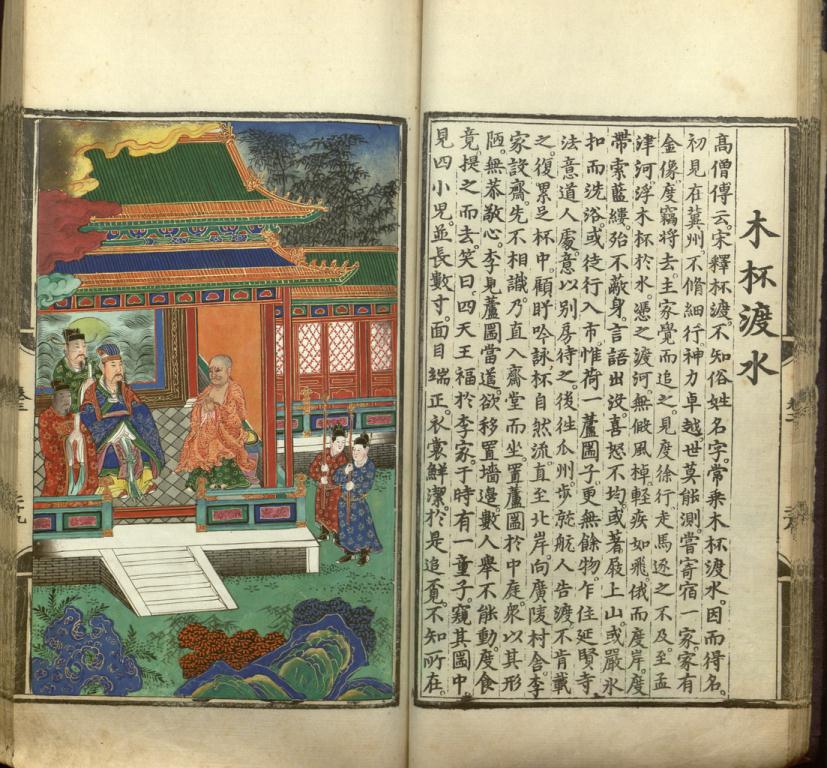 木杯渡水
高僧傳云。宋釋杯渡。不知俗姓名字。常乘木杯渡水。因而得名。
初見在冀州。不脩細行。神力卓越。世莫能測。嘗寄宿一家。家有
金像。度竊將去。主家覺而追之。見度徐行。走馬逐之不及。至孟
津河。浮木杯於水。憑之渡河。無假風棹。輕疾如飛。俄而度岸。度
帶索藍縷。殆不蔽身。言語出沒。喜怒不均。或著屐上山。或嚴氷
扣而洗浴。或徒行入市。惟荷一蘆圌子。更無餘物。乍住延賢寺
法意道人處。意以別房待之。後往瓜州。步就航人告渡。不肯載
之。復累足杯中。顧眄吟詠。杯自然流。直至北岸。向廣陵村舍。李
家設齋。先不相識。乃直入齋堂而坐。置蘆圌於中庭。衆以其形
陋。無恭敬心。李見蘆圌當道。欲移置墻邊。數人舉不能動。度食
竟。提之而去。笑曰。四天王福於李家。于時有一童子。窺其圌中。
見四小兒。並長數寸。面目端正。衣裳鮮潔。於是追覓。不知所在。